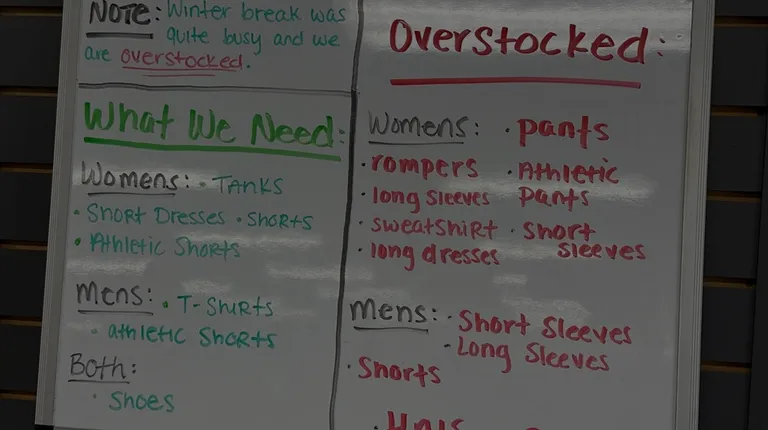 NOTE: Winter break was
quite busy and we
are overstocked.
What We Need:
Womens: · TANKS
· Short Dresses · Shorts
· Athletic Shorts
Mens: · T-Shirts
· athletic Shorts
Both:
· Shoes
Overstocked:
Womens: · pants
· rompers · Athletic
· long sleeves pants
· sweatshirt · short
· long dresses sleeves
mens: · Short Sleeves
· Long Sleeves
· Shorts